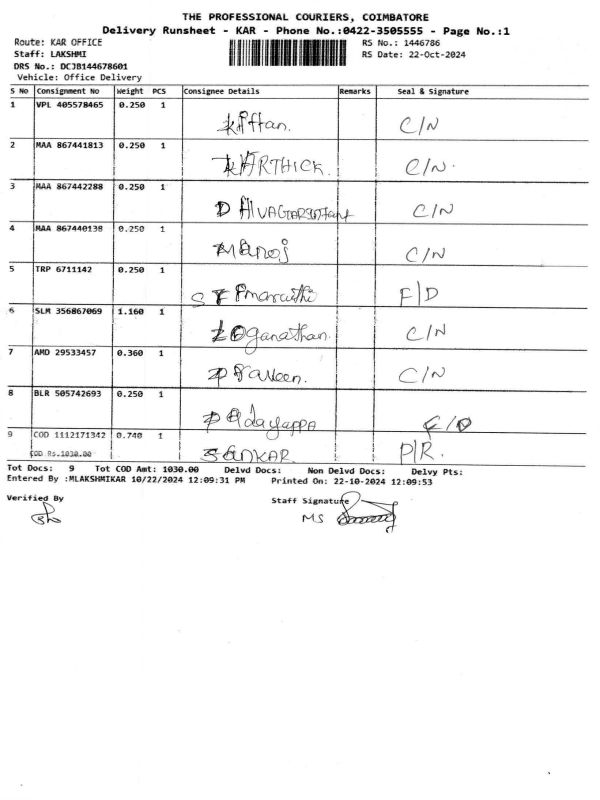 THE PROFESSIONAL COURIERS, COIMBATORE
Delivery Runsheet - KAR - Phone No.:0422-3505555 - Page No.:1
Route: KAR OFFICE RS No.: 1446786
Staff: LAKSHMI RS Date: 22-Oct-2024
DRS No.: DCJB144678601
Vehicle: Office Delivery
S No Consignment No Weight PCS Consignee Details Remarks Seal & Signature
1 VPL 405578465 0.250 1
C/N
2 MAA 867441813 0.250 1
KARTHICK. C/N.
3 MAA 867442288 0.250 1
C/N
4 MAA 867440138 0.250 1
Manoj C/N
5 TRP 6711142 0.250 1
F/D
6 SLM 356867069 1.160 1
Loganathan. C/N
7 AMD 29533457 0.360 1
C/N
8 BLR 505742693 0.250 1
9 COD 1112171342 0.740 1
COD Rs.1030.00 SANKAR P/R.
Tot Docs: 9 Tot COD Amt: 1030.00 Delvd Docs: Non Delvd Docs: Delvy Pts:
Entered By :MLAKSHMIKAR 10/22/2024 12:09:31 PM Printed On: 22-10-2024 12:09:53
Verified By Staff Signature
MS